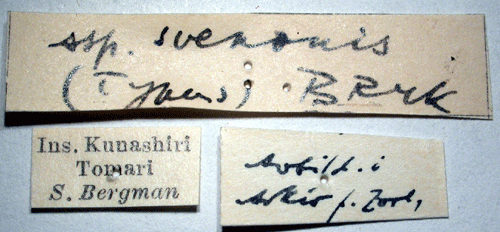 ssp. svenonis
(Typus) BRYK
Ins. Kunashiri
Tomari
S. Bergman
Avbild. i
Arkiv f. Zool,